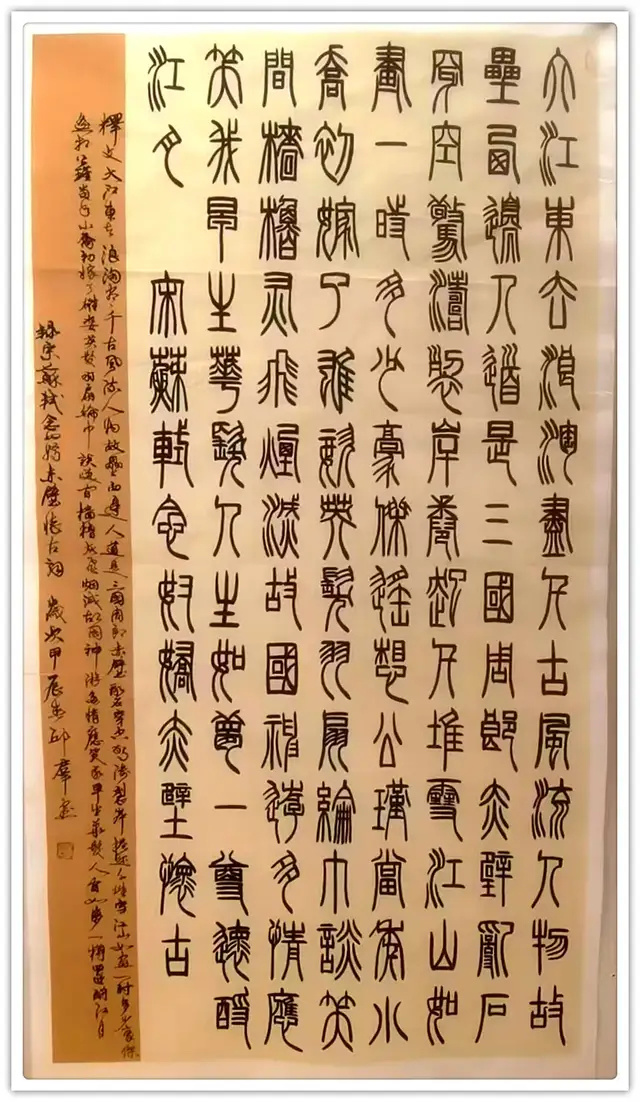 大江東去浪淘盡千古風流人物故
壘西邊人道是三國周郎赤壁亂石
穿空驚濤裂岸卷起千堆雪江山如
畫一時多少豪傑遙想公瑾當年小
喬初嫁了雄姿英發羽扇綸巾談笑
間檣櫓灰飛煙滅故國神遊多情應
笑我早生華髮人生如夢一尊還酹
江月 宋蘇軾念奴嬌赤壁懷古
釋文大江東去浪淘盡千古風流人物故壘西邊人道是三國周郎赤壁亂石穿空驚濤裂岸捲起千堆雪江山如畫一時多少豪傑
遙想公瑾當年小喬初嫁了雄姿英發羽扇綸巾談笑間檣櫓灰飛烟滅故國神游多情應笑我早生華髮人間如夢一樽還酹江月
錄宋蘇軾念奴嬌赤壁懷古詞 歲次甲辰 邱群